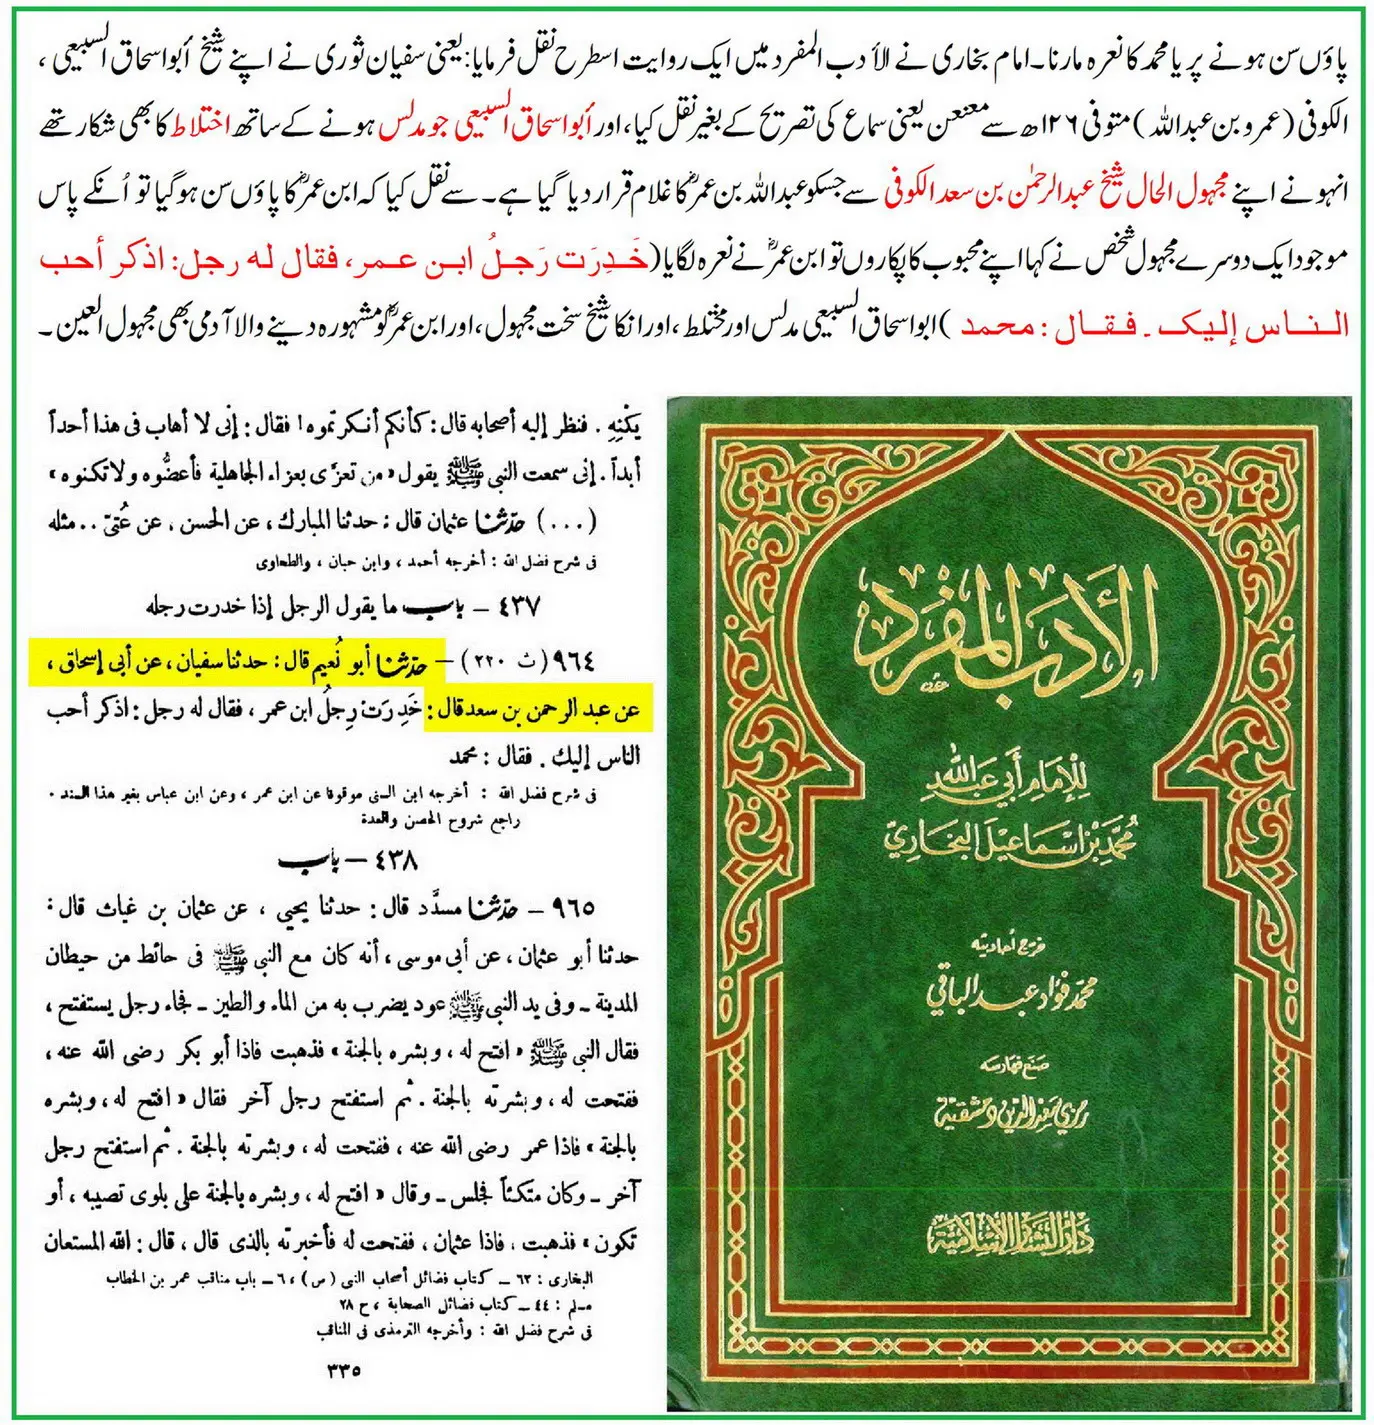 پاؤں سن ہونے پر یا محمد کا نعرہ مارنا۔ امام بخاری نے الأدب المفرد میں ایک روایت اسطرح نقل فرمایا: یعنی سفیان ثوری نے اپنے شیخ أبو اسحاق السبیعی،
الکوفی (عمرو بن عبد اللہ) متوفی ۱۲۶ھ سے معنعن یعنی سماع کی تصریح کے بغیر نقل کیا، اور أبو اسحاق السبیعی جو مدلس ہونے کے ساتھ اختلاط کا بھی شکار تھے
انہو نے اپنے مجہول الحال شیخ عبد الرحمٰن بن سعد الکوفی سے جسکو عبد اللہ بن عمرؓ کا غلام قرار دیا گیا ہے۔ سے نقل کیا کہ ابن عمرؓ کا پاؤں سن ہو گیا تو اُنکے پاس
موجود ایک دوسرے مجہول شخص نے کہا اپنے محبوب کا پکاروں تو ابن عمرؓ نے نعرہ لگایا (خَدِرَت رَجلُ ابن عمر، فقال له رجل: اذكر أحب
الناس إلیک۔ فقال: محمد) ابو اسحاق السبیعی مدلس اور مختلط، اور انکا شیخ سخت مجہول، اور ابن عمرؓ کو مشہورہ دینے والا آدمی بھی مجہول العین۔
يَكْنِهِ . فنظر إليه أصحابه قال : كأنكم أنكرتموه ! فقال : إنى لا أهاب فى هذا أحداً
أبداً . إنى سمعت النبى ﷺ يقول « من تعزَّى بعزاء الجاهلية فأعضُّوه ولا تكنوه »
( ... ) حدّثنا عثمان قال : حدثنا المبارك ، عن الحسن ، عن عُتىّ .. مثله
فى شرح فضل الله : أخرجه أحمد ، وابن حبان ، والطحاوى
٤٣٧ – باب ما يقول الرجل إذا خدرت رجله
٩٦٤ ( ث ٢٢٠ ) – حدّثنا أبو نُعيم قال : حدثنا سفيان ، عن أبى إسحاق ،
عن عبد الرحمن بن سعد قال : خَدِرَت رِجلُ ابن عمر ، فقال له رجل : اذكر أحب
الناس إليك . فقال : محمد
فى شرح فضل الله : أخرجه ابن السنى موقوفا عن ابن عمر ، وعن ابن عباس بغير هذا السند .
راجع شروح الحصن والعمدة
٤٣٨ – باب
٩٦٥ – حدّثنا مسدَّد قال : حدثنا يحيى ، عن عثمان بن غياث قال :
حدثنا أبو عثمان ، عن أبى موسى ، أنه كان مع النبى ﷺ فى حائط من حيطان
المدينة – وفى يد النبى ﷺ عود يضرب به من الماء والطين – فجاء رجل يستفتح ،
فقال النبى ﷺ « افتح له ، وبشره بالجنة » فذهبت فاذا أبو بكر رضى الله عنه ،
ففتحت له ، وبشرته بالجنة . ثم استفتح رجل آخر فقال « افتح له ، وبشره
بالجنة » فاذا عمر رضى الله عنه ، ففتحت له ، وبشرته بالجنة . ثم استفتح رجل
آخر – وكان متكئاً فجلس – وقال « افتح له ، وبشره بالجنة على بلوى تصيبه ، أو
تكون » فذهبت ، فاذا عثمان ، ففتحت له فأخبرته بالذى قال ، قال : الله المستعان
البخارى : ٦٢ – كتاب فضائل أصحاب النبى (ص) ، ٦ – باب مناقب عمر بن الخطاب
مسلم : ٤٤ – كتاب فضائل الصحابة ، ح ٢٨
فى شرح فضل الله : وأخرجه الترمذى فى المناقب
٣٣٥
الأدب المفرد
للإمام أبي عبد الله
محمد بن اسماعيل البخاري
خرج أحاديثه
محمد فؤاد عبد الباقي
صنع فهارسه
رمزي سعد الدين دمشقية
دار البشائر الإسلامية